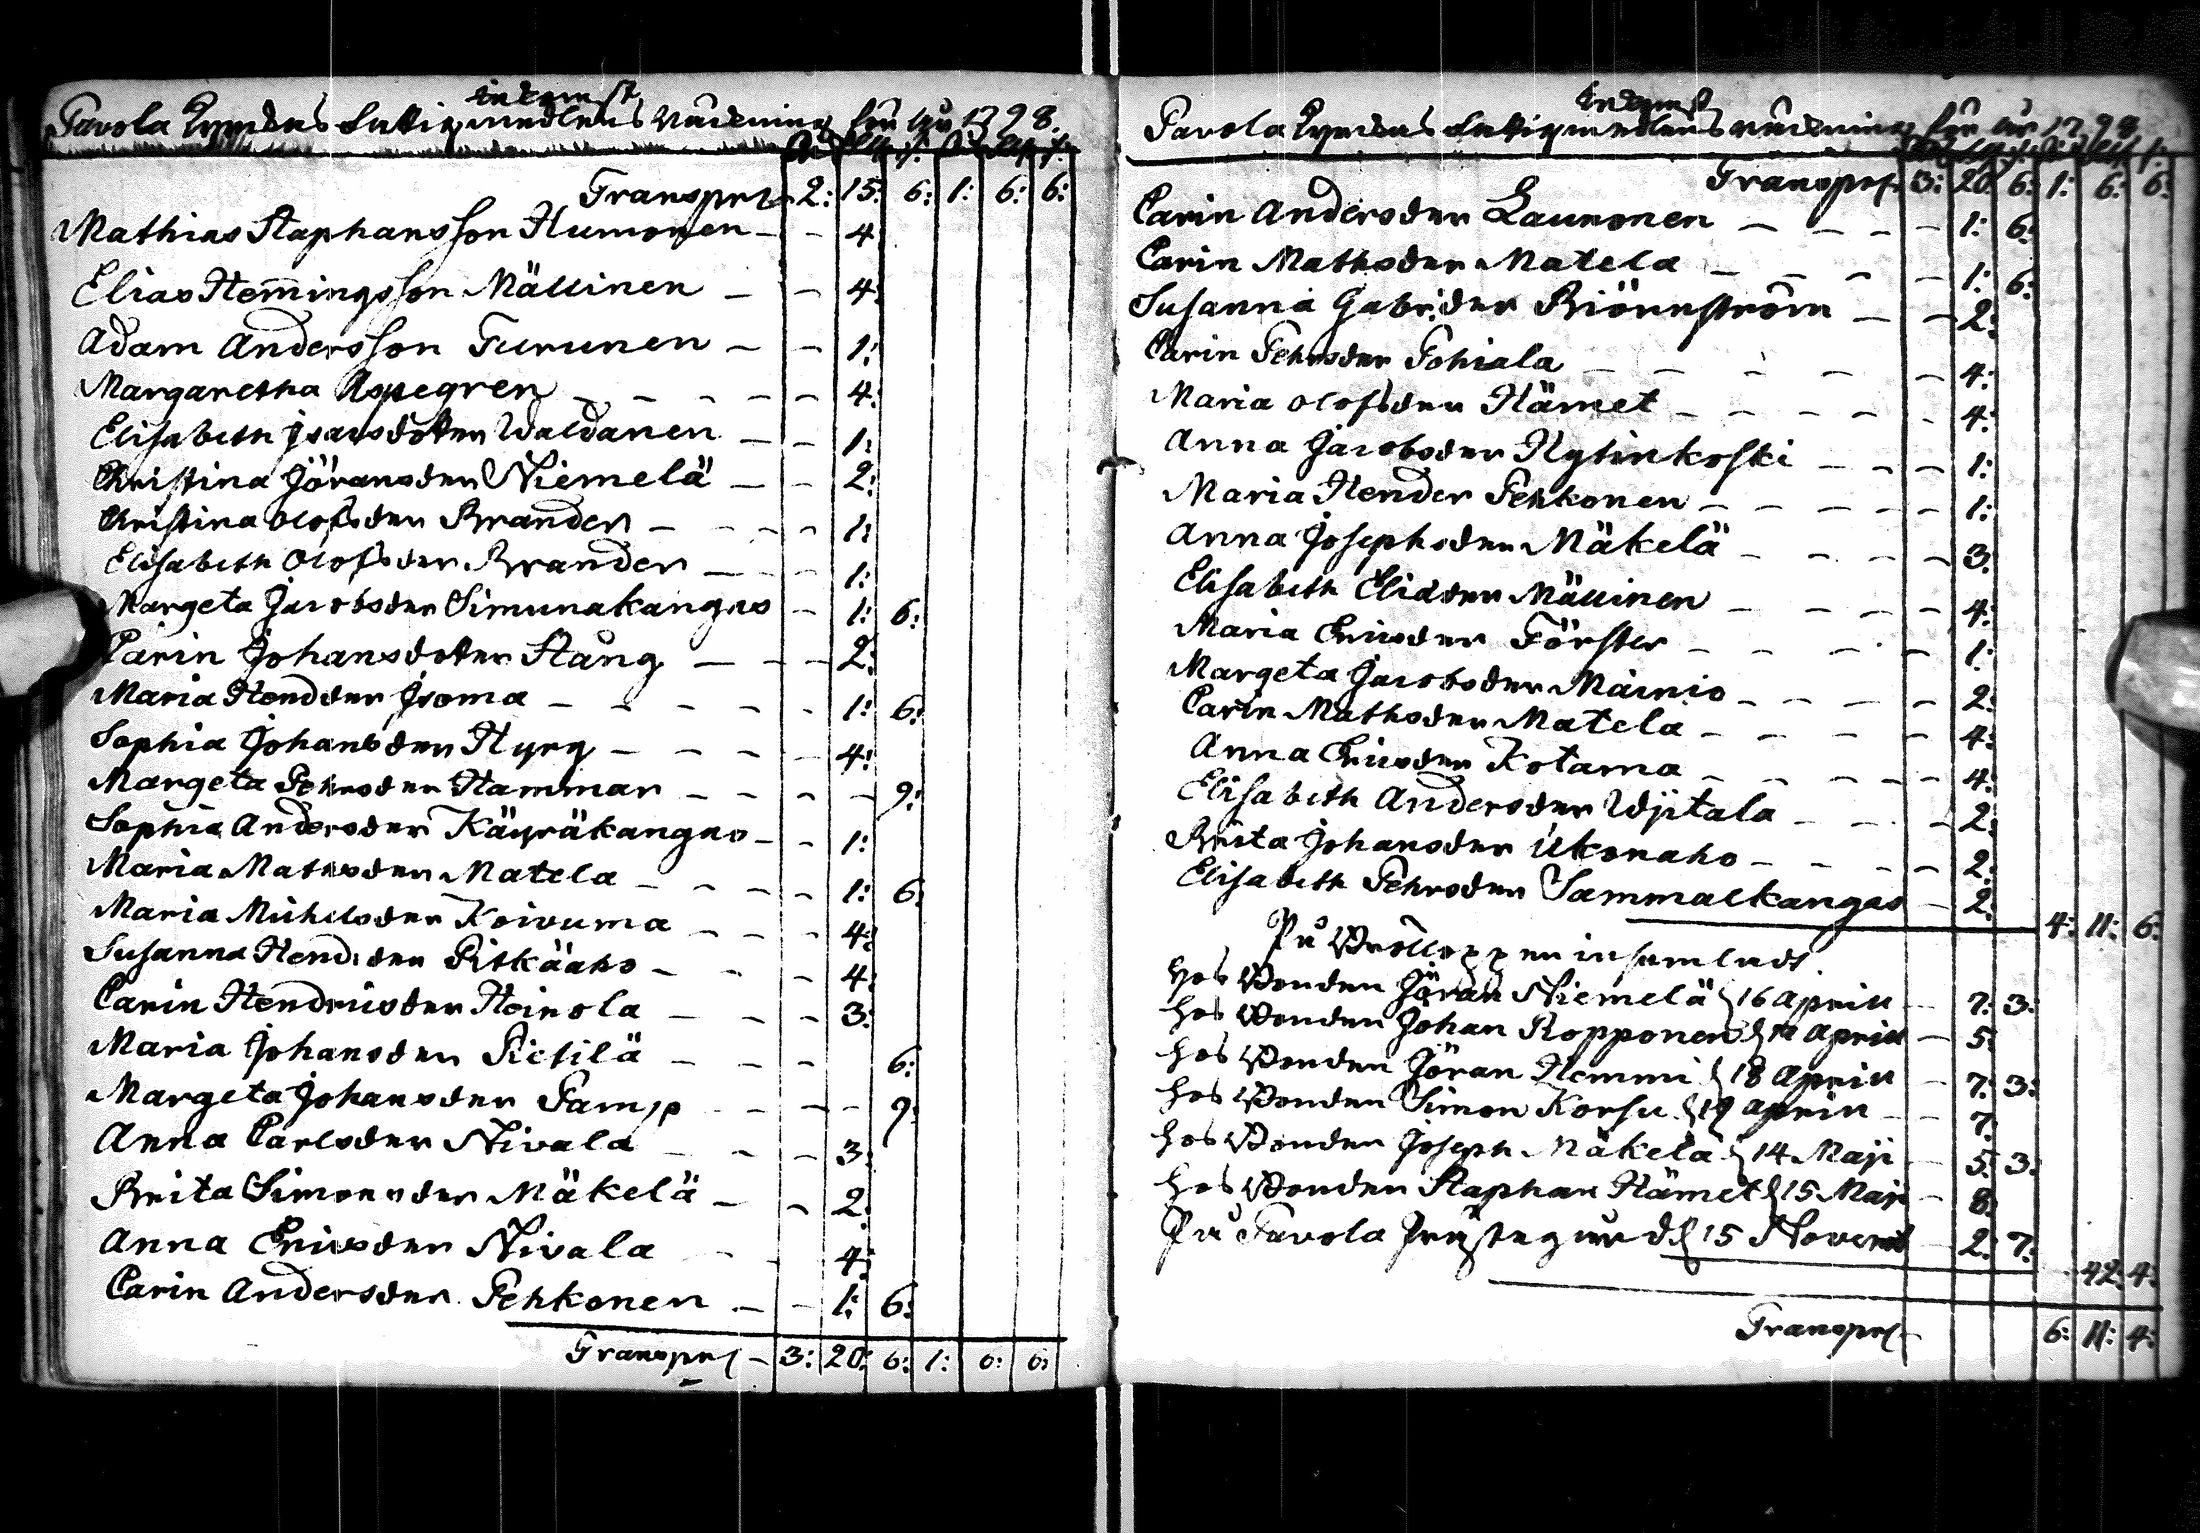 Inkomst
Pavola Kyrckas fattigmedlens räckning för år 1798.
Rd. sk. r. Rd. sk. r.
Transport 2: 15: 6: 1: 6: 6:
Mathias Staphansson Humonen - - 4
Elias Hem̄ingsson Mällinen - - 4:
Adam Andersson Turunen - - 1:
Margaretha Aspegren - - - - - 4:
Elisabeth Isacsdotter Waldanen - - 1:
Christina Jöransder Niemelä - - 2:
Christina Olofsder Brander - - - - 1:
Elisabeth Olofsder Brander - - - 1:
Margeta Jacobsder Simunakangas - 1: 6:
Carin Johansdotter Stång - - - 2:
Maria Hendder Isoma - - - - - 1: 6:
Sophia Johansder Hyry - - - - 4:
Margeta Pehrsder Hammar - - - - 9:
Sophia Andersder Käyräkangas - - 1:
Maria Mathsder Matela - - - - 1: 6:
Maria Michelsder Koivuma - - - 4:
Susanna Hend:der Pitkäaho - - - 4:
Carin Hendricsder Heinola - - - 3:
Maria Johansder Pietilä - - - 6:
Margeta Johansder Tamp - - - - 9:
Anna Carlsder Nivala - - - 3:
Brita Simonsder Mäkelä - - 2:
Anna Ericsder Nivala - - 4:
Carin Andersder Pehkonen - - 1: 6:
Transport - 3: 20: 6: 1: 6: 6:
Inkomst
Pavola Kyrckas fattigmedlens räckning för år 1798
Transport 3: 20: 6: 1: 6: 6:
Carin Andersder Launonen - - - - - 1: 6:
Carin Mathsder Matela - - - - - 1: 6:
Susanna Gabr:der Biörnström - - 2:
Carin Pehrsder Pohiala - - - - - 4:
Maria Olofsder Hämet - - - - - 4:
Anna Jacobsder Hytinkoski - - - 1:
Maria Hender Pehkonen - - - - - 1:
Anna Josephsder Mäkelä - - - - 3.
Elisabeth Eliadder Mällinen - - - - 4:
Maria Ericsder Förster - - - - - 1:
Margeta Jacobsder Mainio - - - - - 2:
Carin Mathsder Matela - - - - - 4:
Anna Ericsder Kotama - - - - - 4:
Elisabeth Andersder Wijtala - - - - 2:
Brita Johansder Ukonaho - - - - - 2:
Elisabeth Pehrsder Sammalkangas - 2: 4: 11: 6:
På Bröllopper insamladt.
hos Bonden Jöran Niemelä 16 April - 7: 3:
hos Bonden Johan Ropponen April - 5:
hos Bonden Jöran Hemmi 18 April - 7: 3:
hos Bonden Simon Korsu 19 April - 7:
hos Bonden Joseph Mäkelä 14 Maji - 5: 3:
hos Bonden Staphan Hämet 15 Maji - 8:
På Pavola Prästegård d 15 Novemb - 2: 7: 42: 4:
Transport - 6: 11: 4: